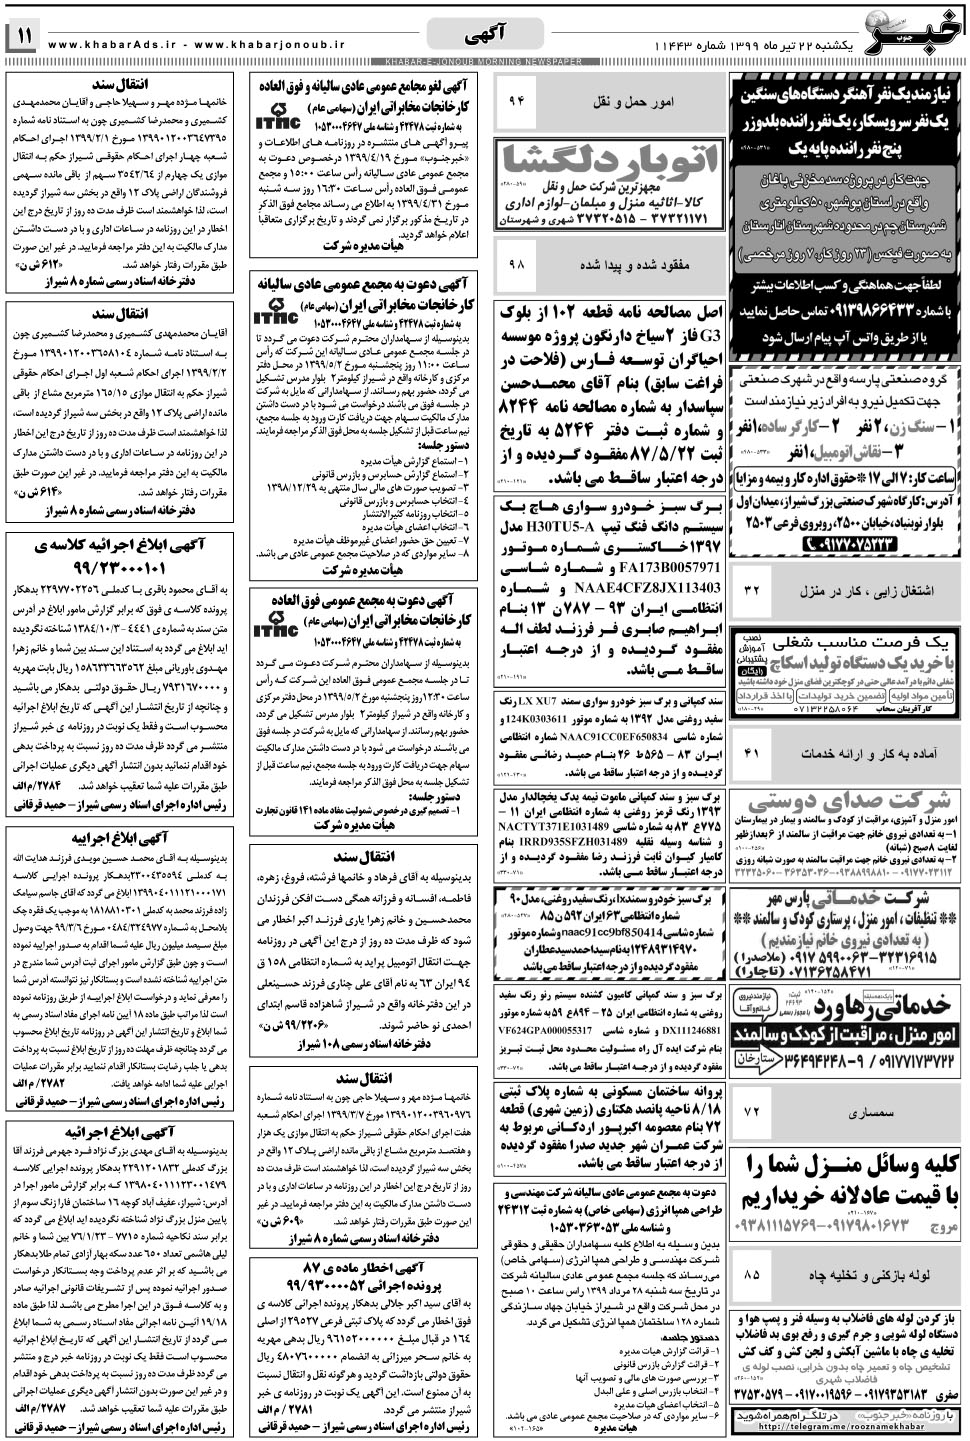 خبر جنوب
یکشنبه ۲۲ تیر ماه ۱۳۹۹ شماره ۱۱۴۴۳
آگهی
www.khabarAds.ir - www.khabarjonoub.ir
۱۱
KHABAR-E-JONOUB MORNING NEWSPAPER
نیازمند یک نفر آهنگر دستگاه های سنگین
یک نفر سرویسکار، یک نفر راننده بلدوزر
پنج نفر راننده پایه یک
جهت کار در پروژه سد مخزنی باغان
واقع در استان بوشهر، ۵۰ کیلومتری
شهرستان جم در محدوده شهرستان انارستان
به صورت فیکس (۲۳ روز کار، ۷ روز مرخصی)
لطفاً جهت هماهنگی و کسب اطلاعات بیشتر
با شماره ۰۹۱۳۹۸۶۶۴۳۳ تماس حاصل نمایید
یا از طریق واتس آپ پیام ارسال شود
گروه صنعتی پارسه واقع در شهرک صنعتی
جهت تکمیل نیرو به افراد زیر نیازمند است
۱- سنگ زن، ۲نفر ۲- کارگر ساده، ۱نفر
۳- نقاش اتومبیل، ۱نفر
ساعت کار: ۷ الی ۱۷ * حقوق اداره کار و بیمه و مزایا
آدرس: کارگاه شهرک صنعتی بزرگ شیراز، میدان اول
بلوار نوبنیاد، خیابان ۲۵۰۰، روبروی فرعی ۲۵۰۳
۰۹۱۷۷۰۷۵۲۲۳
اشتغال زایی ، کار در منزل
۳۲
یک فرصت مناسب شغلی
با خرید یک دستگاه تولید اسکاچ
نصب
آموزش
پشتیبانی
رایگان
شغلی دائم با درآمد عالی حتی در کوچکترین فضای منزل خود داشته باشید
تأمین مواد اولیه
تضمین خرید تولیدات
با اخذ قرارداد
کارآفرینان سحاب ۰۷۱۳۲۲۵۸۰۶۴
آماده به کار و ارائه خدمات
۴۱
شرکت صدای دوستی
امور منزل و آشپزی، مراقبت از کودک و سالمند و بیمار در بیمارستان
۱- به تعدادی نیروی خانم جهت مراقبت از سالمند از ۶ بعدازظهر
لغایت ۸ صبح (شبانه)
۲- به تعدادی نیروی خانم جهت مراقبت سالمند به صورت شبانه روزی
شرکت خدماتی پارس مهر
تنظیفات ، امور منزل، پرستاری کودک و سالمند
( به تعدادی نیروی خانم نیازمندیم )
۳۲۳۱۶۹۱۵-۰۹۱۷ ۵۹۹۰۰۶۳ (ملاصدرا)
۰۷۱۳۶۲۵۸۴۷۱ (تاچارا)
خدماتی رهاورد
امور منزل، مراقبت از کودک و سالمند
۰۹۱۷۷۱۷۳۷۲۲ / ۳۶۴۹۴۲۴۸-۹ ستارخان
سمساری
۷۲
کلیه وسائل منزل شما را
با قیمت عادلانه خریداریم
۰۹۱۷۹۸۰۱۶۷۳-۰۹۳۸۱۱۱۵۷۶۹ مروج
لوله بازکنی و تخلیه چاه
۸۵
باز کردن لوله های فاضلاب به وسیله فنر و پمپ هوا و
دستگاه لوله شویی و جرم گیری و رفع بوی بد فاضلاب
تخلیه ی چاه با ماشین آبکش و لجن کش و کف کش
تشخیص چاه و تعمیر چاه بدون خرابی، نصب لوله ی
فاضلاب شهری
۰۹۱۷۹۳۵۳۱۸۳ - ۰۹۱۷۰۰۱۹۵۹۶ - ۳۷۵۳۰۵۷۹ صفری
با روزنامه «خبر جنوب» در تلگرام همراه شوید
http://telegram.me/rooznamekhabar
امور حمل و نقل
۹۴
اتوبار دلگشا
مجهزترین شرکت حمل و نقل
کالا-اثاثیه منزل و مبلمان-لوازم اداری
۳۷۳۲۱۱۷۱ - ۳۷۳۲۰۵۱۵ شهری و شهرستان
مفقود شده و پیدا شده
۹۸
اصل مصالحه نامه قطعه ۱۰۲ از بلوک
G3 فاز ۲ سیاخ دارنگون پروژه موسسه
احیاگران توسعه فارس (فلاحت در
فراغت سابق) بنام آقای محمدحسن
سپاسدار به شماره مصالحه نامه ۸۲۴۴
و شماره ثبت دفتر ۵۲۴۴ به تاریخ
ثبت ۸۷/۵/۲۲ مفقود گردیده و از
درجه اعتبار ساقط می باشد.
برگ سبز خودرو سواری هاچ بک
سیستم دانگ فنگ تیپ H30TU5-A مدل
۱۳۹۷ خاکستری شماره موتور
FA173B0057971 و شماره شاسی
NAAE4CFZ8JX113403 و شماره
انتظامی ایران ۹۳ - ۷۸۷ ن ۱۳ بنام
ابراهیم صابری فر فرزند لطف اله
مفقود گردیده و از درجه اعتبار
ساقط می باشد.
سند کمپانی و برگ سبز خودرو سواری سمند LX XU7 رنگ
سفید روغنی مدل ۱۳۹۲ به شماره موتور 124K0303611 و
شماره شاسی NAAC91CC0EF650834 شماره انتظامی
ایران ۸۳ - ۵۶۵ ط ۲۶ بنام حمید رضائی مفقود
گردیده و از درجه اعتبار ساقط می باشد.
برگ سبز و سند کمپانی ماموت نیمه یدک یخچالدار مدل
۱۳۹۳ رنگ قرمز روغنی به شماره انتظامی ایران ۱۱ -
۷۷۵ ع ۸۳ به شماره شاسی NACTYT371E1031489
و شناسه وسیله نقلیه IRRD935SFZH031489 بنام
کامیار کیوان ثابت فرزند رضا مفقود گردیده و از
درجه اعتبار ساقط می باشد.
برگ سبز خودرو سمند lx، رنگ سفید روغنی، مدل ۹۰
شماره انتظامی ۶۳ ایران ۵۹۲ ن ۸۵
شماره شاسی naac91cc9bf850414 و شماره موتور
۱۲۴۸۹۳۱۴۹۷۰ به نام سید احمد سیدعطاران
مفقود گردیده و از درجه اعتبار ساقط می باشد
برگ سبز و سند کمپانی کامیون کشنده سیستم رنو رنگ سفید
روغنی به شماره انتظامی ایران ۲۵ - ۸۹۴ ع ۵۹ به شماره موتور
DX111246881 و شماره شاسی VF624GPA000055317
بنام شرکت ایده آل راه مسئولیت محدود محل ثبت تبریز
مفقود گردیده و از درجه اعتبار ساقط می باشد.
پروانه ساختمان مسکونی به شماره پلاک ثبتی
۸/۱۸ ناحیه پانصد هکتاری (زمین شهری) قطعه
۷۲ بنام معصومه اکبرپور اردکانی مربوط به
شرکت عمران شهر جدید صدرا مفقود گردیده
از درجه اعتبار ساقط می باشد.
دعوت به مجمع عمومی عادی سالیانه شرکت مهندسی و
طراحی همپا انرژی (سهامی خاص) به شماره ثبت ۲۴۳۱۲
و شناسه ملی ۱۰۵۳۰۳۶۳۰۵۳
بدین وسیله به اطلاع کلیه سهامداران حقیقی و حقوقی
شرکت مهندسی و طراحی همپا انرژی (سهامی خاص)
می رساند که جلسه مجمع عمومی عادی سالیانه شرکت
در تاریخ سه شنبه ۲۸ مرداد ۱۳۹۹ راس ساعت ۱۰ صبح
در محل شرکت واقع در شیراز خیابان جهاد سازندگی
شماره ۱۲۸ ساختمان همپا انرژی تشکیل می گردد.
دستور جلسه:
۱- قرائت گزارش هیات مدیره
۲- قرائت گزارش بازرس قانونی
۳- بررسی صورت های مالی و تصویب آنها
۴- انتخاب بازرس اصلی و علی البدل
۵- انتخاب اعضای هیات مدیره
۶- سایر مواردی که در صلاحیت مجمع عمومی عادی می باشد.
هیات مدیره
آگهی لغو مجامع عمومی عادی سالیانه و فوق العاده
کارخانجات مخابراتی ایران (سهامی عام)
به شماره ثبت ۴۲۴۷۸ و شناسه ملی ۱۰۵۳۰۰۰۴۶۴۷
ITMC
پیرو آگهی های منتشره در روزنامه های اطلاعات و
«خبرجنوب» مورخ ۱۳۹۹/۴/۱۹ درخصوص دعوت به
مجامع عمومی عادی سالیانه راس ساعت ۱۵:۰۰ و مجمع
عمومی فوق العاده راس ساعت ۱۶:۳۰ روز سه شنبه
۱۳۹۹/۴/۳۱ به اطلاع می رساند مجامع فوق الذکر
در تاریخ مذکور برگزار نمی گردند و تاریخ برگزاری متعاقباً
اعلام خواهد گردید.
هیأت مدیره شرکت
آگهی دعوت به مجمع عمومی عادی سالیانه
کارخانجات مخابراتی ایران (سهامی عام)
به شماره ثبت ۴۲۴۷۸ و شناسه ملی ۱۰۵۳۰۰۰۴۶۴۷
ITMC
بدینوسیله از سهامداران محترم شرکت دعوت می گردد تا
در جلسه مجمع عمومی عادی سالیانه این شرکت که رأس
ساعت ۱۱:۰۰ روز پنجشنبه مورخ ۱۳۹۹/۵/۲ در محل دفتر
مرکزی و کارخانه واقع در شیراز کیلومتر۲ بلوار مدرس تشکیل
می گردد، حضور بهم رسانند. از سهامدارانی که مایل به شرکت
در جلسه فوق می باشند درخواست می شود با در دست داشتن
مدارک مالکیت سهام جهت دریافت کارت ورود به جلسه مجمع،
نیم ساعت قبل از تشکیل جلسه به محل فوق الذکر مراجعه فرمایند.
دستور جلسه:
۱- استماع گزارش هیأت مدیره
۲- استماع گزارش حسابرس و بازرس قانونی
۳- تصویب صورت های مالی سال منتهی به ۱۳۹۸/۱۲/۲۹
۴- انتخاب حسابرس و بازرس قانونی
۵- انتخاب روزنامه کثیرالانتشار
۶- انتخاب اعضای هیأت مدیره
۷- تعیین حق حضور اعضای غیرموظف هیأت مدیره
۸- سایر مواردی که در صلاحیت مجمع عمومی عادی می باشد.
هیأت مدیره شرکت
آگهی دعوت به مجمع عمومی فوق العاده
کارخانجات مخابراتی ایران (سهامی عام)
به شماره ثبت ۴۲۴۷۸ و شناسه ملی ۱۰۵۳۰۰۰۴۶۴۷
ITMC
بدینوسیله از سهامداران محترم شرکت دعوت می گردد
در جلسه مجمع عمومی فوق العاده این شرکت که رأس
ساعت ۱۲:۳۰ روز پنجشنبه مورخ ۱۳۹۹/۵/۲ در محل دفتر مرکزی
و کارخانه واقع در شیراز کیلومتر۲ بلوار مدرس تشکیل می گردد،
حضور بهم رسانند. از سهامدارانی که مایل به شرکت در جلسه فوق
می باشند درخواست می شود با در دست داشتن مدارک مالکیت
سهام جهت دریافت کارت ورود به جلسه مجمع، نیم ساعت قبل از
تشکیل جلسه به محل فوق الذکر مراجعه فرمایند.
دستور جلسه:
۱- تصمیم گیری درخصوص شمولیت مفاد ماده ۱۴۱ قانون تجارت
هیأت مدیره شرکت
انتقال سند
بدینوسیله به آقای فرهاد و خانمها فرشته، فروغ، زهره،
فاطمه، افسانه و فرزانه همگی دست افکن فرزندان
محمدحسین و خانم زهرا یاری فرزند اکبر اخطار می
شود که ظرف مدت ده روز از درج این آگهی در روزنامه
جهت انتقال اتومبیل پراید به شماره انتظامی ۱۵۸ ق
۹۴ ایران ۶۳ به نام آقای علی چناری فرزند حسینعلی
در این دفترخانه واقع در شیراز شاهزاده قاسم ابتدای
احمدی نو حاضر شوند.
«۹۹/۲۲۰۶ ش ن»
دفترخانه اسناد رسمی ۱۰۸ شیراز
انتقال سند
خانمها مژده مهر و سهیلا حاجی به استناد نامه شماره
۱۳۹۹۰۱۲۰۰۳۹۶۰۹۷۶ مورخ ۱۳۹۹/۳/۷ اجرای احکام شعبه
هفت اجرای احکام حقوقی شیراز حکم به انتقال موازی یک هزار
و هفتصد مترمربع مشاع از باقی مانده اراضی پلاک ۱۲ واقع در
بخش سه شیراز گردیده است، لذا خواهشمند است ظرف مدت ده روز
از تاریخ درج این اخطار در این روزنامه در ساعات اداری و با در
دست داشتن مدارک مالکیت به این دفتر مراجعه فرمایید. در غیر
این صورت طبق مقررات رفتار خواهد شد. «۶۰۹ ش ن»
دفترخانه اسناد رسمی شماره ۸ شیراز
آگهی اخطار ماده ی ۸۷
پرونده اجرائی ۹۹/۹۳۰۰۰۵۲
به آقای سید اکبر جلالی بدهکار پرونده اجرایی کلاسه ی
فوق ابلاغ می گردد که پلاک ثبتی فرعی ۲۹۵۲۷ از اصلی
۱۶۴ در قبال مبلغ ۹۶۱۵۲۰۰۰۰۰۰ ریال بدهی مهریه
به خانم سحر میرزانی به انضمام ۴۸۰۷۶۰۰۰۰۰ ریال
حقوق دولتی بازداشت گردید و هرگونه نقل و انتقال نسبت
به آن ممنوع است. این آگهی یک نوبت در روزنامه ی خبر
شیراز منتشر می گردد. ۲۷۸۱/ م الف
رئیس اداره اجرای اسناد رسمی شیراز - حمید فرقانی
انتقال سند
خانمها مژده مهر و سهیلا حاجی و آقایان محمدمهدی
کشمیری و محمدرضا کشمیری چون به استناد نامه شماره
۱۳۹۹۰۱۲۰۰۳۶۴۷۳۹۵ مورخ ۱۳۹۹/۲/۱ اجرای احکام
شعبه چهار اجرای احکام حقوقی شیراز حکم به انتقال
موازی یک چهارم از ۳۰۴۲/۶۴ سهم از باقی مانده سهمی
فروشندگان اراضی پلاک ۱۲ واقع در بخش سه شیراز گردیده
است، لذا خواهشمند است ظرف مدت ده روز از تاریخ درج این
اخطار در این روزنامه در ساعات اداری و با در دست داشتن
مدارک مالکیت به این دفتر مراجعه فرمایید. در غیر این صورت
طبق مقررات رفتار خواهد شد. «۶۱۲ ش ن»
دفترخانه اسناد رسمی شماره ۸ شیراز
انتقال سند
آقایان محمدمهدی کشمیری و محمدرضا کشمیری چون
به استناد نامه شماره ۱۳۹۹۰۱۲۰۰۳۶۵۸۱۰۴ مورخ
۱۳۹۹/۲/۲ اجرای احکام شعبه اول اجرای احکام حقوقی
شیراز حکم به انتقال موازی ۱۶۵/۱۵ مترمربع مشاع از باقی
مانده اراضی پلاک ۱۲ واقع در بخش سه شیراز گردیده است،
لذا خواهشمند است ظرف مدت ده روز از تاریخ درج این اخطار
در این روزنامه در ساعات اداری و با در دست داشتن مدارک
مالکیت به این دفتر مراجعه فرمایید. در غیر این صورت طبق
مقررات رفتار خواهد شد. «۶۱۴ ش ن»
دفترخانه اسناد رسمی شماره ۸ شیراز
آگهی ابلاغ اجرائیه کلاسه ی
۹۹/۲۳۰۰۰۱۰۱
به آقای محمود باقری با کدملی ۲۲۹۷۷۰۲۲۵۶ بدهکار
پرونده کلاسه ی فوق که برابر گزارش مامور ابلاغ در آدرس
متن سند به شماره ی ۴۴۴۱ - ۱۳۸۴/۱۰/۳ شناخته نگردیده
اید ابلاغ می گردد به استناد این سند بین شما و خانم زهرا
مهدوی باوریانی مبلغ ۱۵۸۶۳۳۶۶۳۵۶۲ ریال بابت مهریه
و ۷۹۳۱۶۷۰۰۰۰ ریال حقوق دولتی بدهکار می باشید
محسوب است و فقط یک نوبت در روزنامه ی خبر شیراز
منتشر می گردد ظرف مدت ده روز نسبت به پرداخت بدهی
خود اقدام ننمائید بدون انتشار آگهی دیگری عملیات اجرائی
طبق مقررات علیه شما تعقیب خواهد شد. ۲۷۸۴/ م الف
رئیس اداره اجرای اسناد رسمی شیراز - حمید فرقانی
آگهی ابلاغ اجراییه
بدینوسیله به آقای محمد حسین مویدی فرزند هدایت الله
کدملی ۲۳۰۰۴۳۵۵۹۴ بدهکار پرونده اجرایی کلاسه
۱۳۹۹۰۴۰۱۱۱۲۱۰۰۰۱۷۱ ابلاغ می گردد که آقای جاسم سیامک
زاده فرزند محمد به کدملی ۱۸۱۸۸۱۰۳۰۱ به موجب یک فقره چک
بلامحل به شماره ۰۴۸۴/۳۲۴۹۷۷ مورخ ۹۹/۳/۶ جهت وصول
مبلغ سیصد میلیون ریال علیه شما اقدام به صدور اجراییه نموده
است و چون طبق گزارش مامور اجرای ثبت آدرس شما مندرج در
متن اجراییه شناخته نشده است و بستانکار نیز نتوانسته آدرس شما
را معرفی نماید و درخواست ابلاغ اجراییه از طریق روزنامه نموده
است لذا طبق ماده ۱۸ آیین نامه اجرای مفاد اسناد رسمی به شما ابلاغ
می گردد چنانچه ظرف مهلت ده روز از تاریخ ابلاغ نسبت به پرداخت
بدهی یا جلب رضایت بستانکار اقدام ننمایید برابر مقررات عملیات
اجرایی علیه شما ادامه خواهد یافت. ۲۷۸۲/ م الف
رئیس اداره اجرای اسناد رسمی شیراز - حمید فرقانی
آگهی ابلاغ اجرائیه
بدینوسیله به آقای مهدی بزرگ نژاد فرد جهرمی فرزند آقا
بزرگ کدملی ۲۲۹۱۲۰۱۸۳۲ بدهکار پرونده اجرایی کلاسه
۱۳۹۸۰۴۰۰۱۱۱۲۳۰۰۱۴۷۹ که برابر گزارش مامور اجرا در
آدرس: شیراز، عفیف آباد کوچه ۱۶ ساختمان فارا زنگ سوم از
پایین منزل بزرگ نژاد شناخته نگردیده اید ابلاغ می گردد که
برابر سند نکاحیه شماره ۷۷۱۵ - ۷۶/۱/۲۳ بین شما و خانم
لیلی هاشمی تعداد ۶۵۰ عدد سکه بهار آزادی تمام طلا بدهکار
می باشید که بر اثر عدم پرداخت وجه بستانکار درخواست
صدور اجرائیه نموده پس از تشریفات قانونی اجرائیه صادر
و به کلاسه فوق در این اجرا مطرح می باشد لذا طبق ماده
۱۹/۱۸ آئین نامه اجرائی مفاد اسناد رسمی به شما ابلاغ می
گردد از تاریخ انتشار این آگهی که روز ابلاغ اجرائیه شما
محسوب است فقط یک نوبت در روزنامه خبر درج و منتشر
می گردد ظرف مدت ده روز نسبت به پرداخت بدهی خود اقدام
و در غیر این صورت بدون انتشار آگهی دیگری عملیات اجرایی
طبق مقررات علیه شما تعقیب خواهد شد. ۲۷۸۷/ م الف
رئیس اداره اجرای اسناد رسمی شیراز - حمید فرقانی